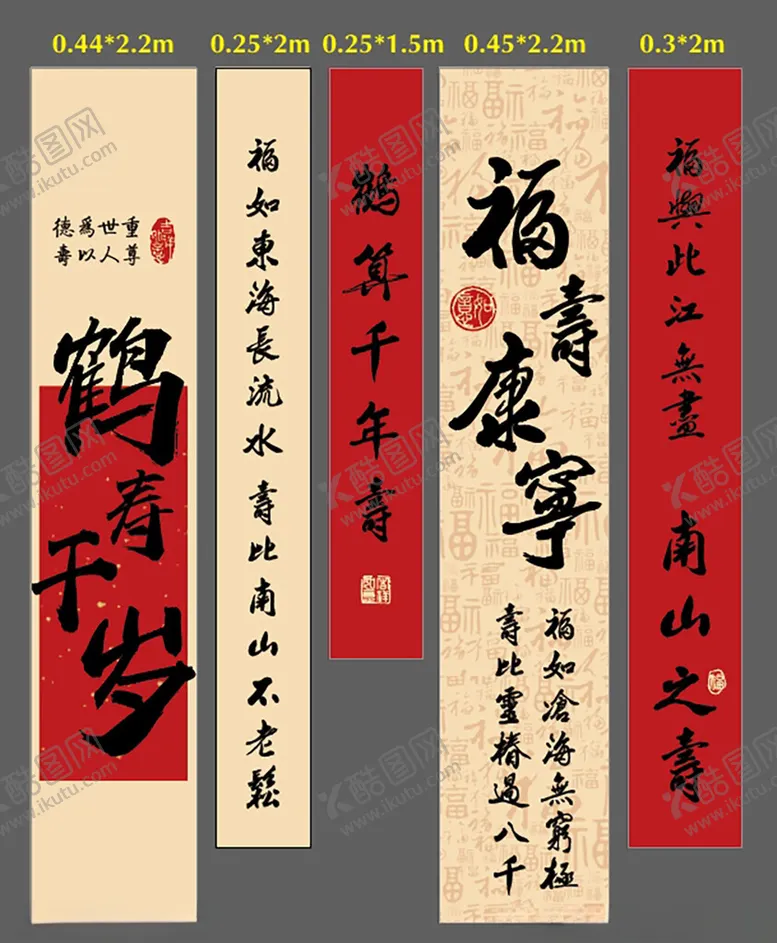 0.44*2.2m
0.25*2m
0.25*1.5m
0.45*2.2m
0.3*2m
德爲世重
壽以人尊
鹤寿千岁
福如東海長流水
壽比南山不老鬆
鶴算千年壽
福壽康寧
如意
福如滄海無窮極
壽比靈椿過八千
福與此江無盡
南山之壽
酷图网
www.ikutu.com